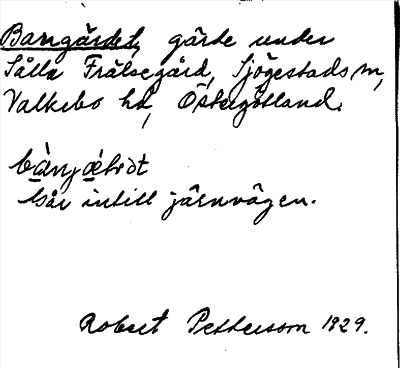 Bangärdet, gärde under
Sålla Frälsegård, Sjögestads sn,
Valkebo hd, Östergötland.
bànjæ̀ṭət
Går intill järnvägen.
Robert Pettersson 1929.